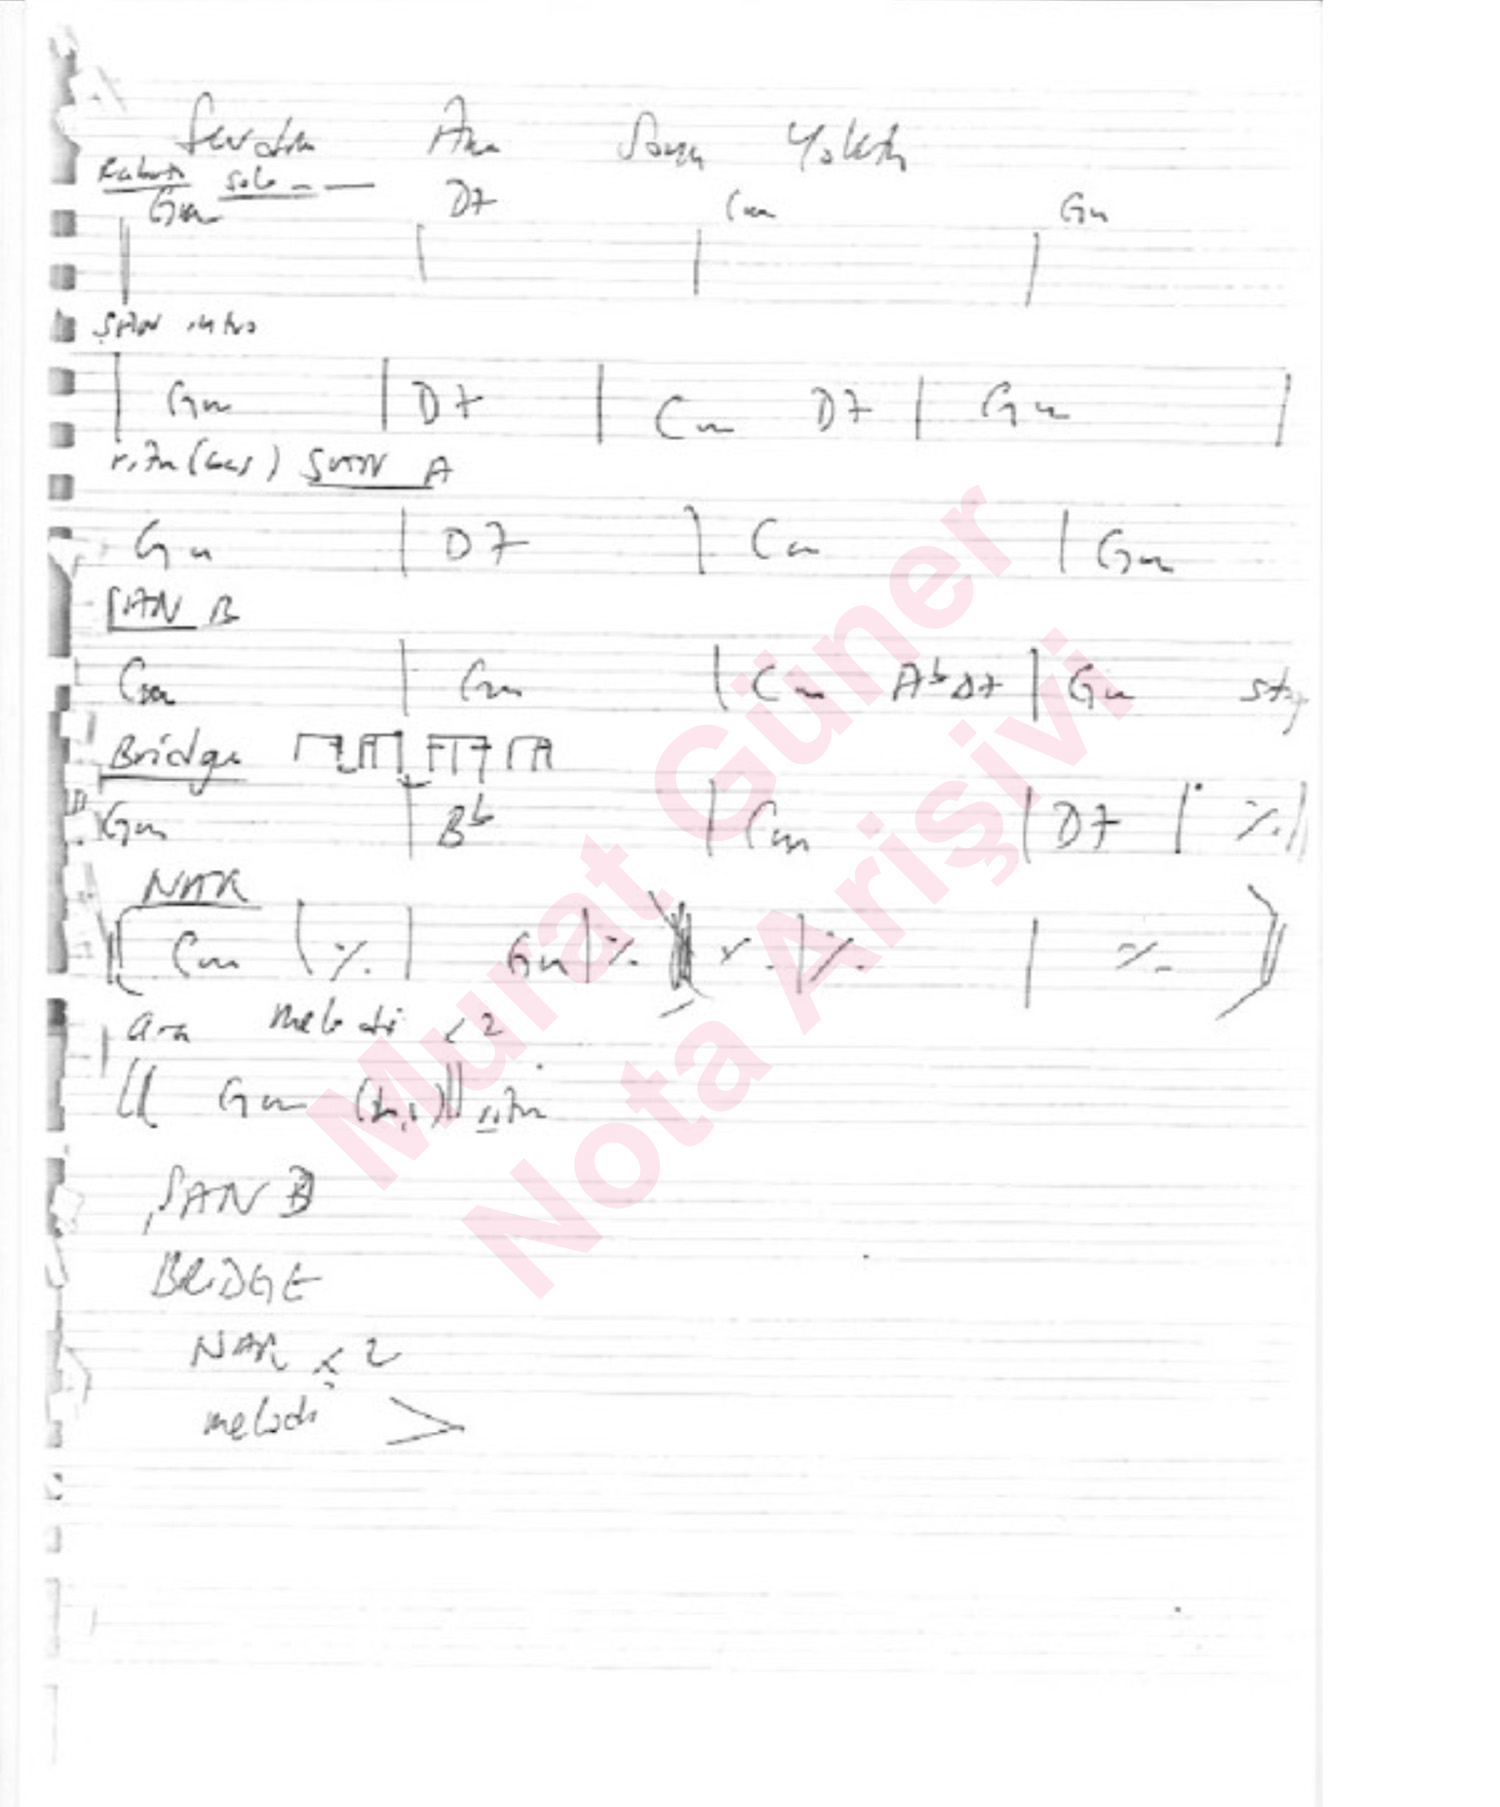 Sevdim Ama Sonu Yoktu
Rubato solo
Gm D7 Cm Gm
ŞAN intro
Gm | D7 | Cm D7 | Gm |
ritm (bas) ŞAN A
Gm | D7 | Cm | Gm
ŞAN B
Cm | Gm | Cm Ab D7 | Gm stop
Bridge
Gm | Bb | Cm | D7 | % |
NAK
Cm | % | Gm | % | % | % | %
ara melodi x 2
Gm ritm
ŞAN B
BRIDGE
NAK x 2
melodi >
Murat Güner
Nota Arişivi